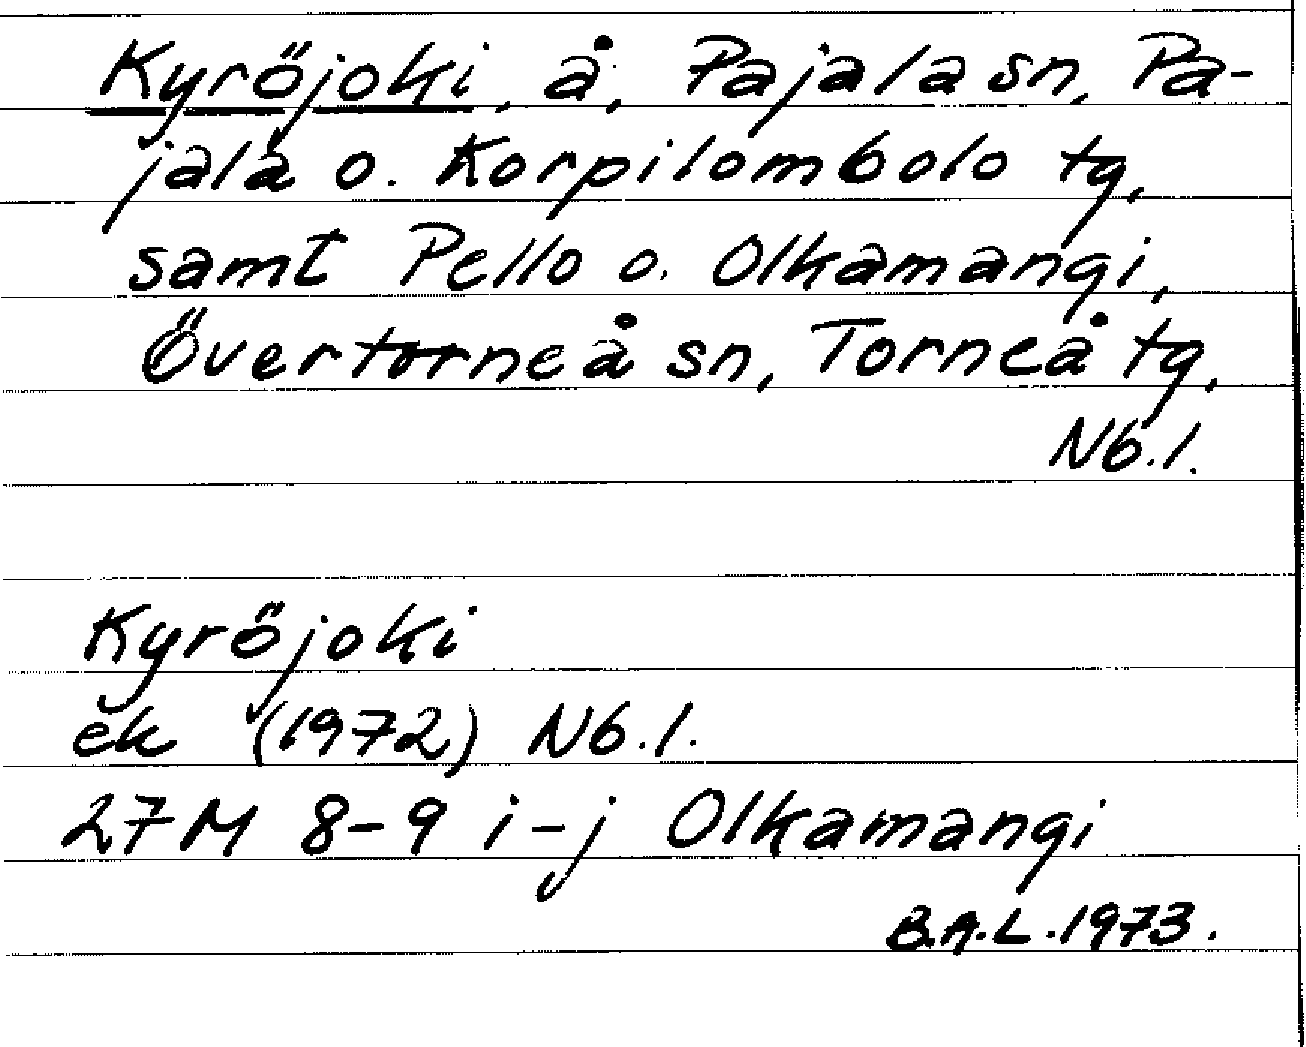 Kyröjoki, å, Pajala sn, Pa-
jala o. Korpilombolo tg,
samt Pello o. Olkamangi,
Övertorneå sn, Torneå tg,
Nb.l.
Kyröjoki
ek (1972) Nb.l.
27M 8-9 i-j Olkamangi
B.A.L. 1973.